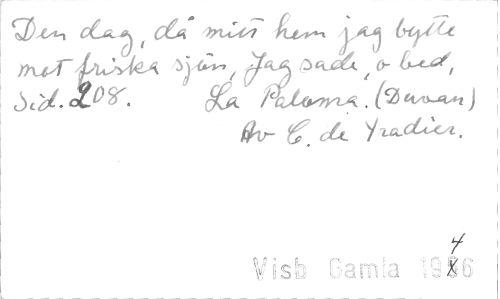 Den dag, då mitt hem jag bytte
mot friska sjön, Jag sade, o bed,
Sid. 208. La Paloma. (Duvan)
Av C. de Yradier.
4
Visb Gamla 1986